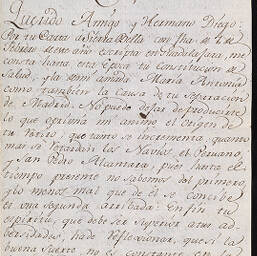 Querido Amigo y Hermano Diego:
Por tu Carta de Sierra Bella con fha. de 2 de
Febrero de este año escripta en Guadalaxara, me
consta hasta esta Epoca tu Constitucion de
Salud, y la de mi amada Maria Antonia
como tambien la Causa de tu Separacion
de Madrid. No puedo dejar de producirte
lo que oprime mi animo el Origen de
tu Vorito que tanto se incrementa quanto
mas se retardan los Navios, el Peruano,
y San Pedro Alcantara, pues hasta el
tiempo presente no sabemos del primero,
y lo menos mal que de él se concibe
es una Segunda arribada: Enfin tu
espiritu, que debe ser Superior a tan ad-
bersidades, hade reflexionar, que si la
buena suerte no es constante en la